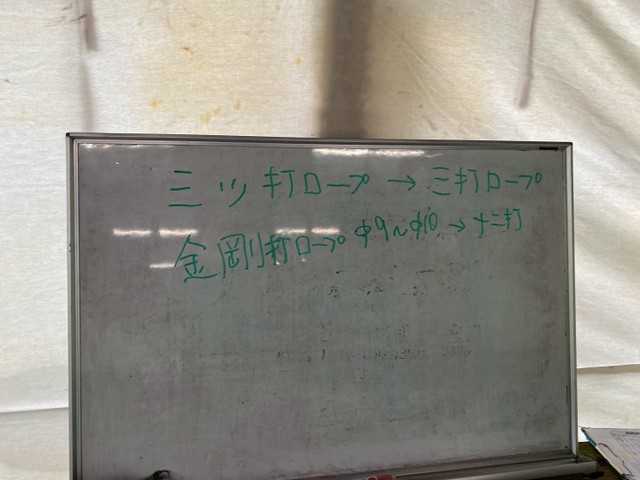 三ツ打ロープ→三打ロープ
金剛打ロープφ9～φ10→十二打